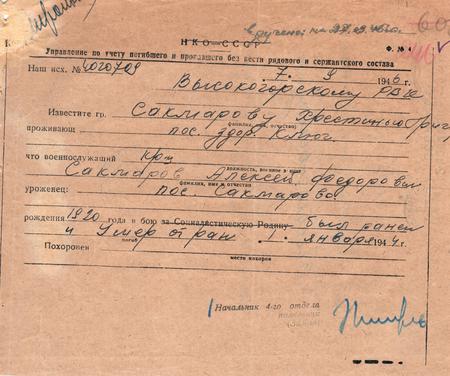 вручено на 27.09.46г.
НКО–СССР
Ф. № 4
Управление по учету погибшего и пропавшего без вести рядового и сержантского состава
Наш исх. № 4020729
7. 9 1946 г.
Высокогорскому РВК
Известите гр. Сакмарову Хрестинью Григ
фамилия, имя, отчество)
проживающ. пос. Здор. Ключ
что военнослужащий крц
должность, военное звание
Сакмаров Алексей Федорович
фамилия, имя и отчество
уроженец: пос. Сакмарово
рождения 1920 года в бою за Социалистическую Родину был ранен
и умер от ран 1. января 1944 г.
погиб
Похоронен
место похорон
Начальник 4-го отдела